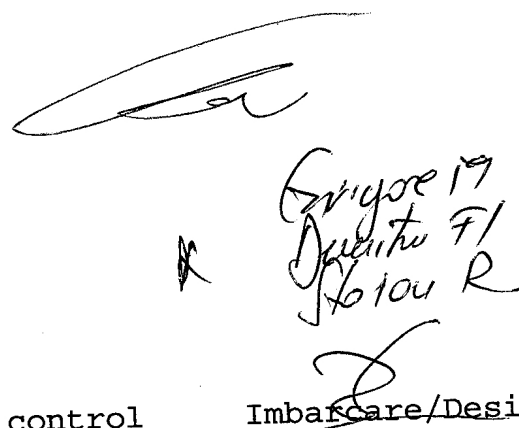 Grigore M
Dumitru Fl
Stoian R
control Imbarcare/Desi